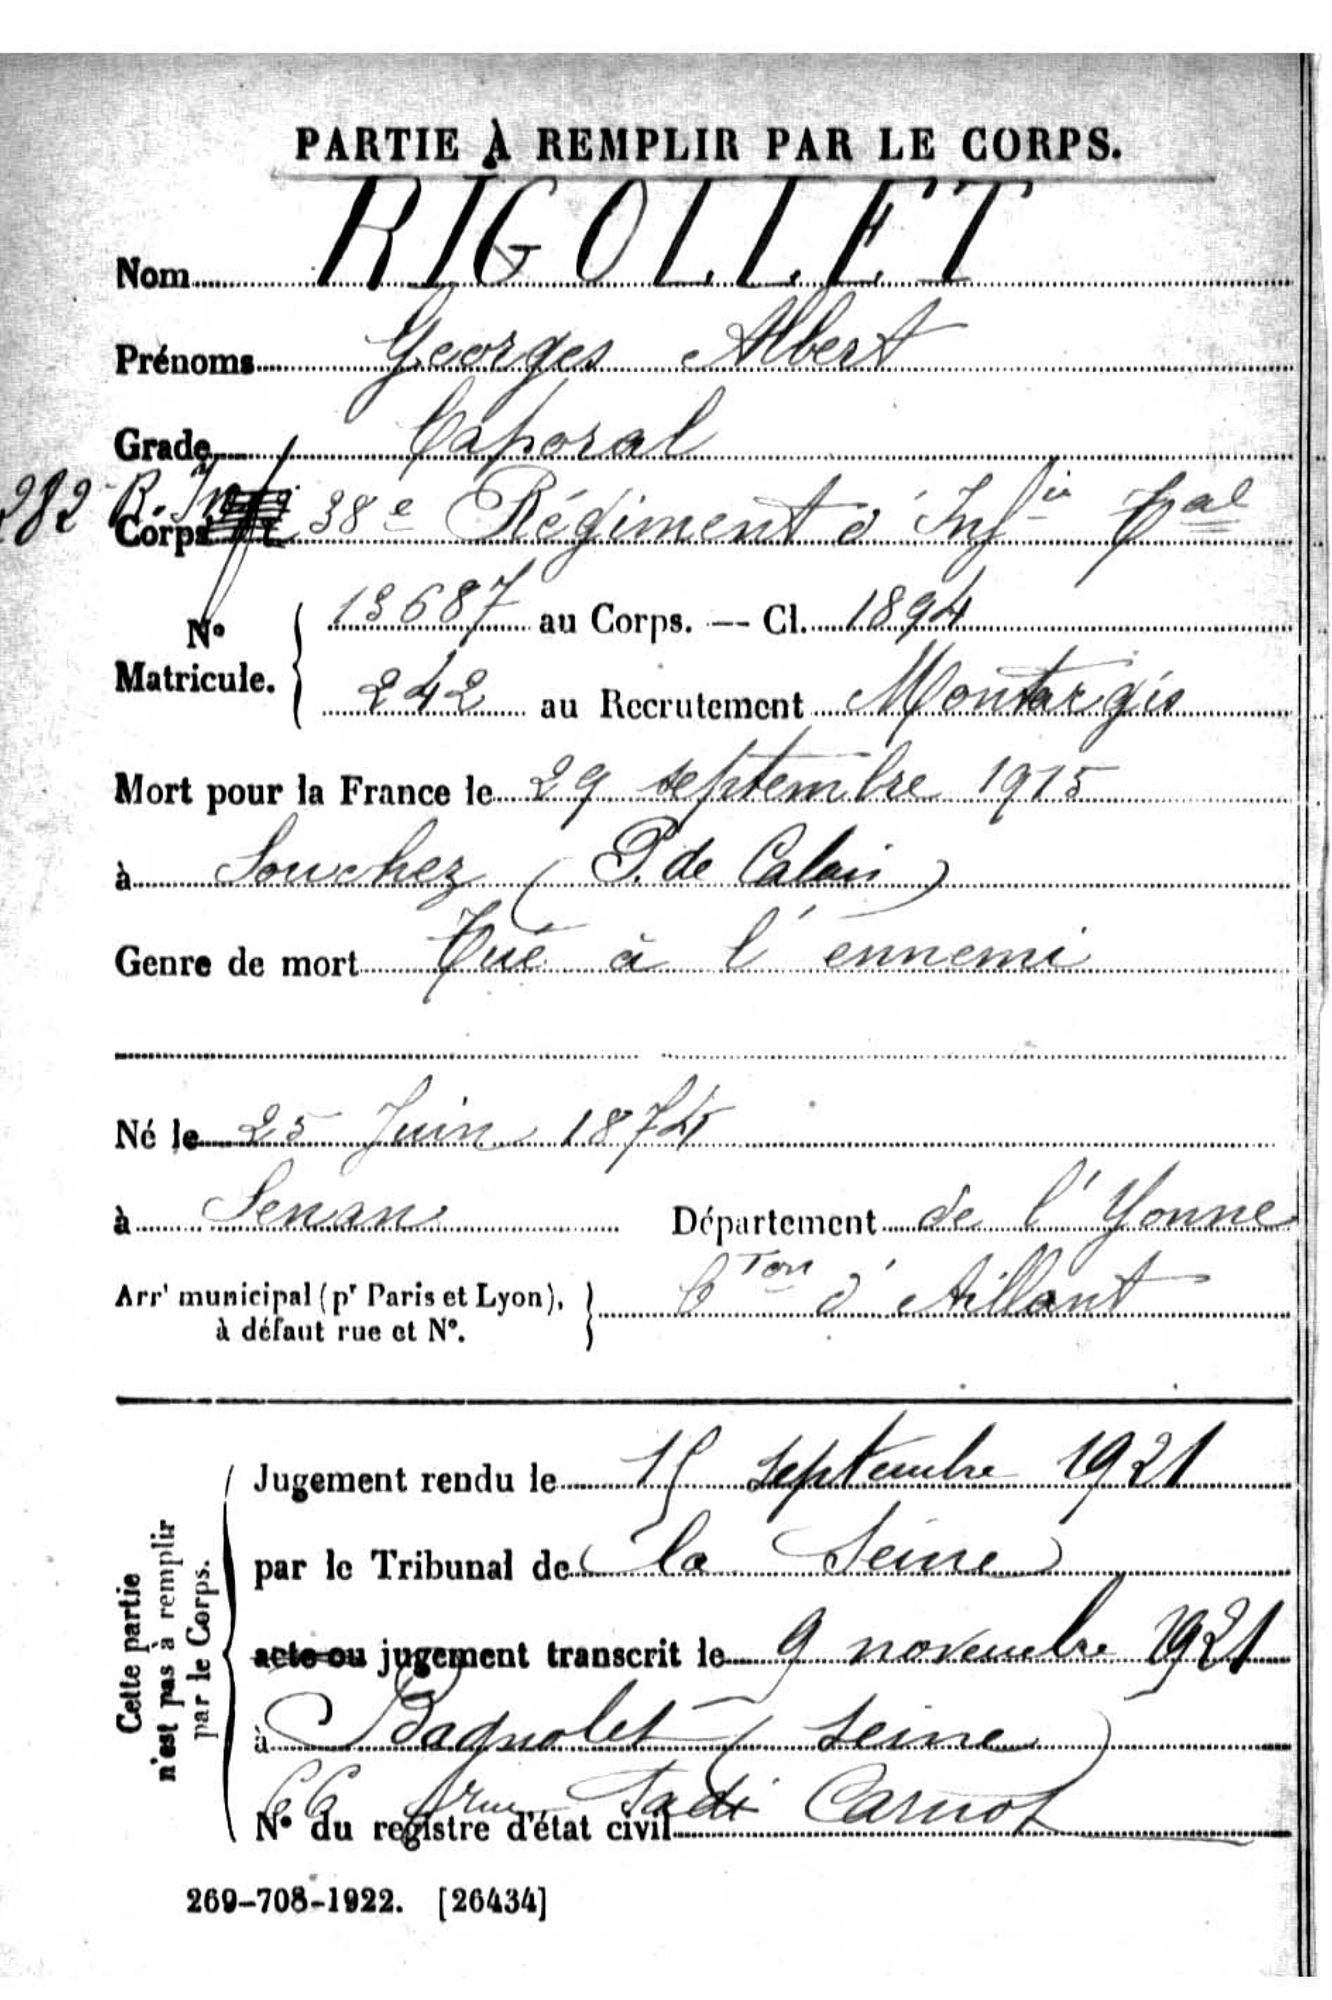 PARTIE À REMPLIR PAR LE CORPS.
Nom RIGOLLET
Prénoms Georges Albert
Grade Caporal
282 R. Inf
Corps 38e Régiment d'Infie Tal
No Matricule. { 13687 au Corps. — Cl. 1894
242 au Recrutement Montargis
Mort pour la France le 29 septembre 1915
à Souchez (P. de Calais)
Genre de mort Tué à l'ennemi
Né le 25 Juin 1874
à Senan Département de l'Yonne
Arrt municipal (pr Paris et Lyon), à défaut rue et No. } Cton d'Aillant
Cette partie n'est pas à remplir par le Corps.
Jugement rendu le 15 septembre 1921
par le Tribunal de la Seine
acte ou jugement transcrit le 9 novembre 1921
à Bagnolet (Seine)
66 rue Sadi Carnot
No du registre d'état civil
269-708-1922. [26434]